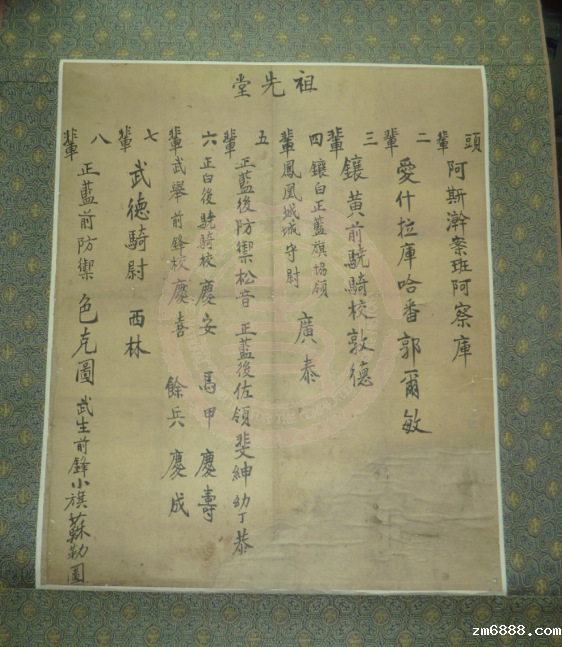 祖先堂
頭輩 阿斯漋案班阿察庫
二輩 愛什拉庫哈番郭爾敏
三輩 鑲黄前驍騎校敦德
四輩 鑲白正藍旗協領
鳳凰城城守尉 廣泰
五輩 正藍後防禦松音 正藍後佐領斐紳 幼丁 泰
六輩 正白後驍騎校慶安 馬甲 慶壽
武舉前鋒校慶喜 餘兵 慶成
七輩 武德騎尉 西林
八輩 正藍前防禦 色克圖 武生前鋒小旗蘇勒圖
zm6888.com